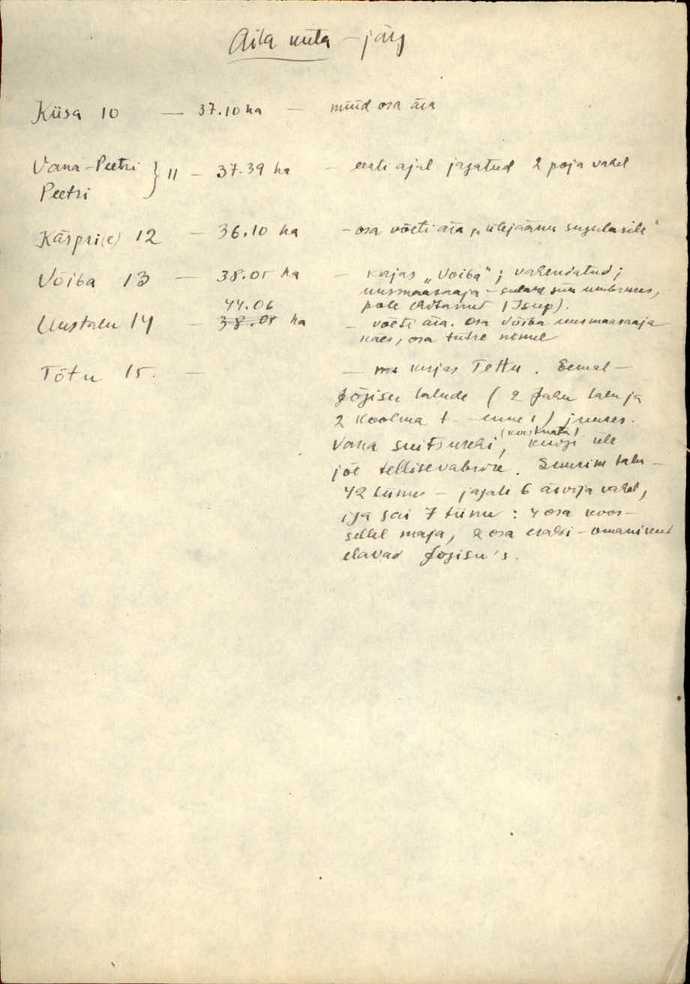 Aila küla – järg
Küsa 10 — 37.10 ha — müüd osa ära
Vana-Peetri
Peetri } 11 — 37.39 ha — eesti ajal jagatud 2 poja vahel
Käspri(e) 12 — 36.10 ha — osa võeti ära "ülejäänu sugulasile"
Võiba 13 — 38.05 ha — kirjas „Voiba"; vahendatud;
uusmaasaaja – sulane siin umbruses,
pole ehitanud
44.06
Uustalu 14 — 38.05 ha — võeti ära. Osa Võiba uusmaasaaja
käes, osa tütre nimel
Tõtu 15. — — ma kirjas Tettu. Eemal –
Jõgisu talude (2 Jaku talu ja
2 Koolma t. enne 1) juures.
Vana suitsurehi,
jõe tellisevabrik. Suurim talu –
42 tiinu – jagati 6 ärvija vahel,
iga sai 7 tiinu: 4 osa koos –
sellel maja, 2 osa eraldi – omanikud
elavad Jõgisu's.